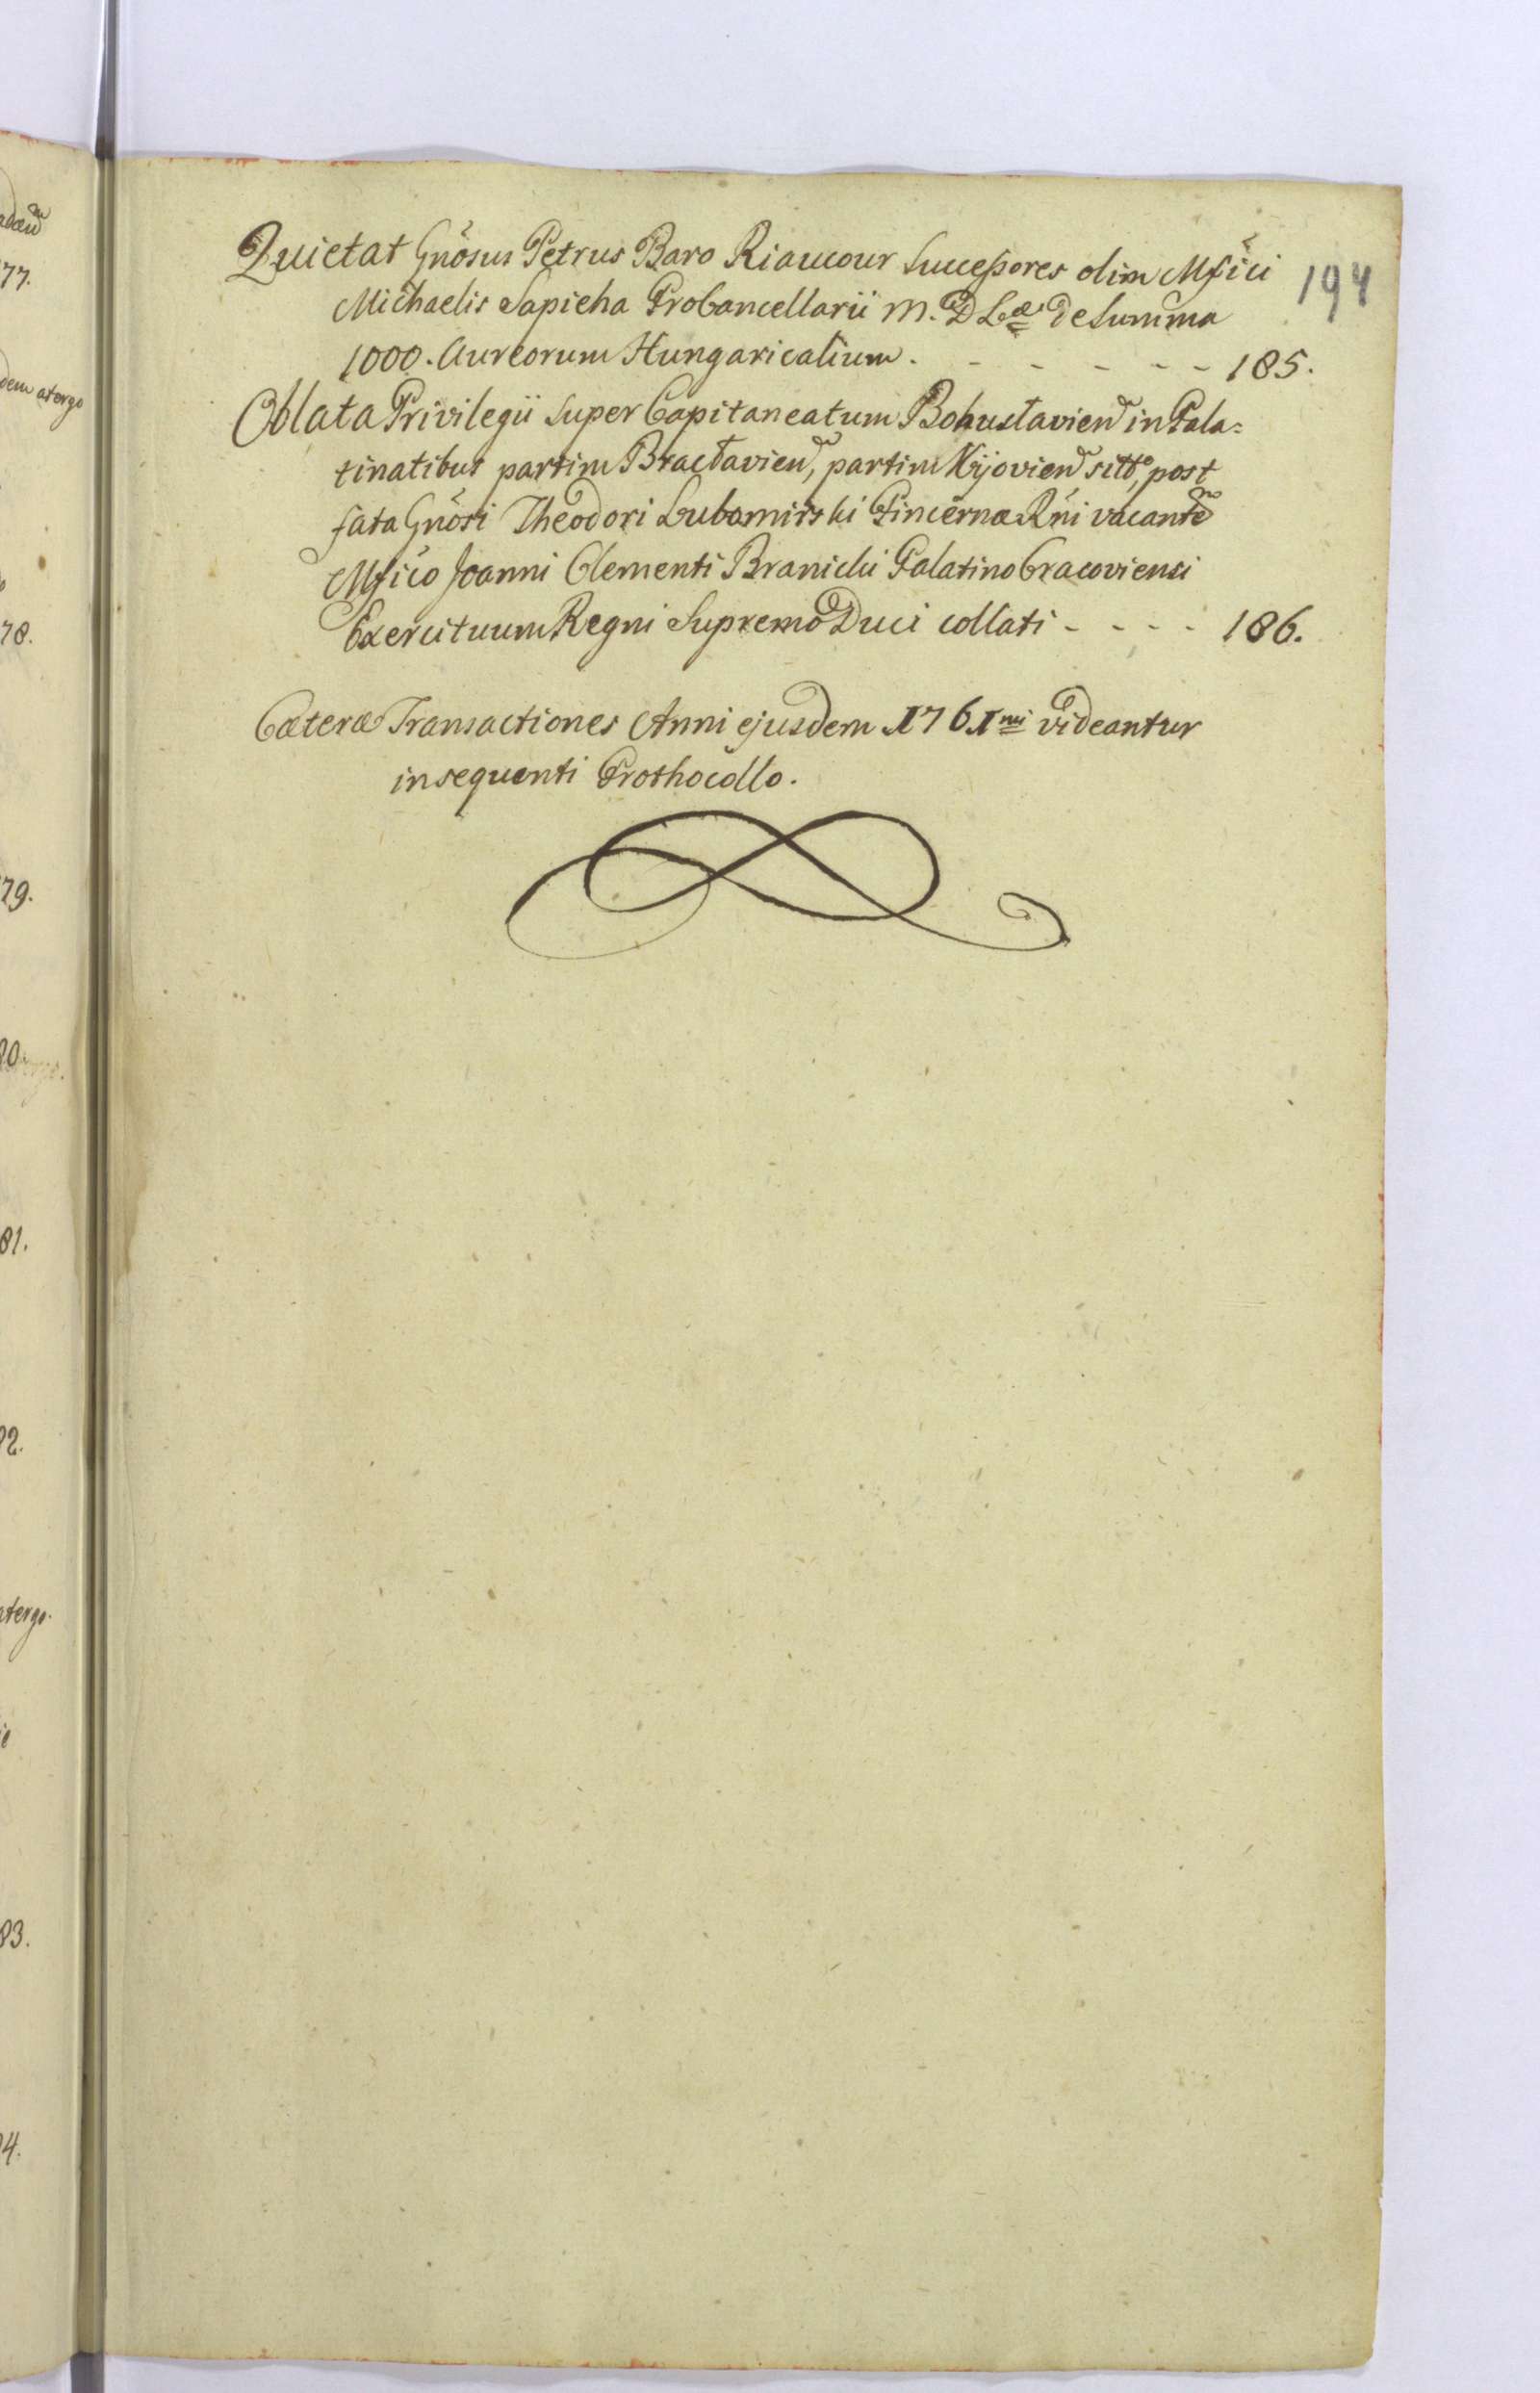 Quietat Gnösus Petrus Baro Riaucour Successores olim Mfici
194
Michaelis Sapieha ProCancellarii M. D Læ de Summa
1000. Aureorum Hungaricalium. - - - - - 185.
Oblata Privilegii super Capitaneatum Bohuslavien in Pala=
tinatibus partim Braclavien, partim Kijovien sitt, post
fata Gnösi Theodori Lubomirski Pincernæ Rni vacante
Mfico Joanni Clementi Branicki Palatino Cracoviensi
Exercituum Regni Supremo Duci collati - - - - 186.
Cæteræ Transactiones Anni ejusdem 1761mi videantur
in sequenti Prothocollo.
77.
dem atergo
78.
79.
81.
atergo.
83.